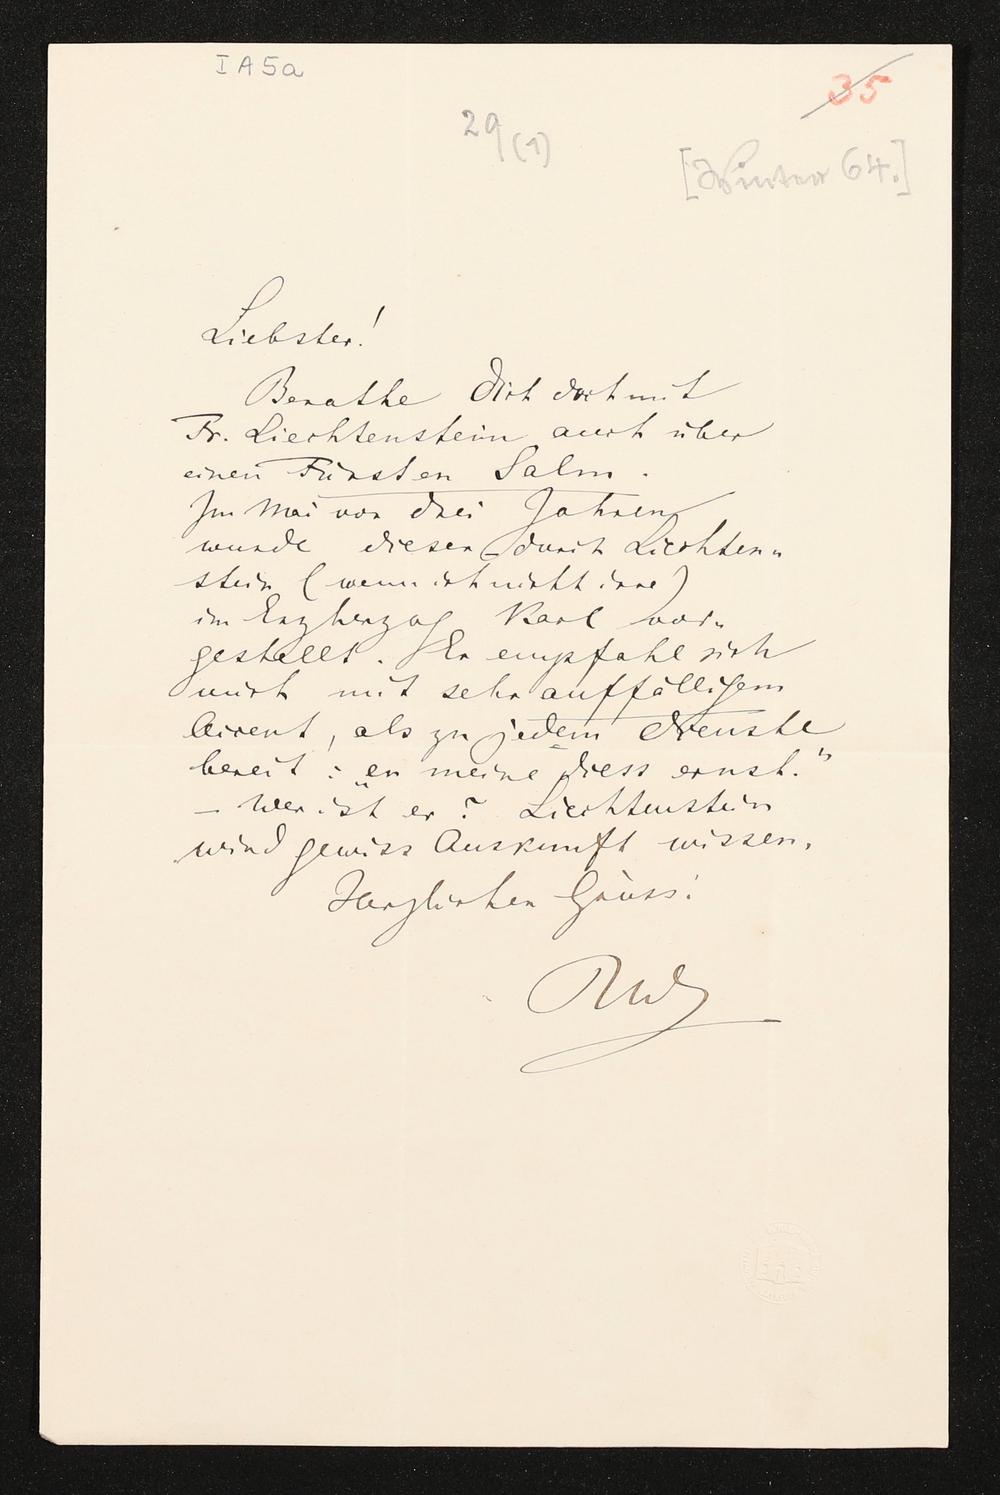 I A 5a
35
29 (1)
[Winter 64.]
Liebster!
Berathe Dich doch mit
Fr. Liechtenstein auch über
einen Fürsten Salm.
Im Mai vor drei Jahren
wurde dieser durch Liechten-
stein (wenn ich nicht irre)
im Erzherzog Karl vor-
gestellt. Er empfahl sich
mich mit sehr auffälligem
Accent, als zu jedem Dienste
bereit: „er meine diess ernst."
– Wer ist er? Liechtenstein
wird gewiss Auskunft wissen.
Herzlichen Gruss!